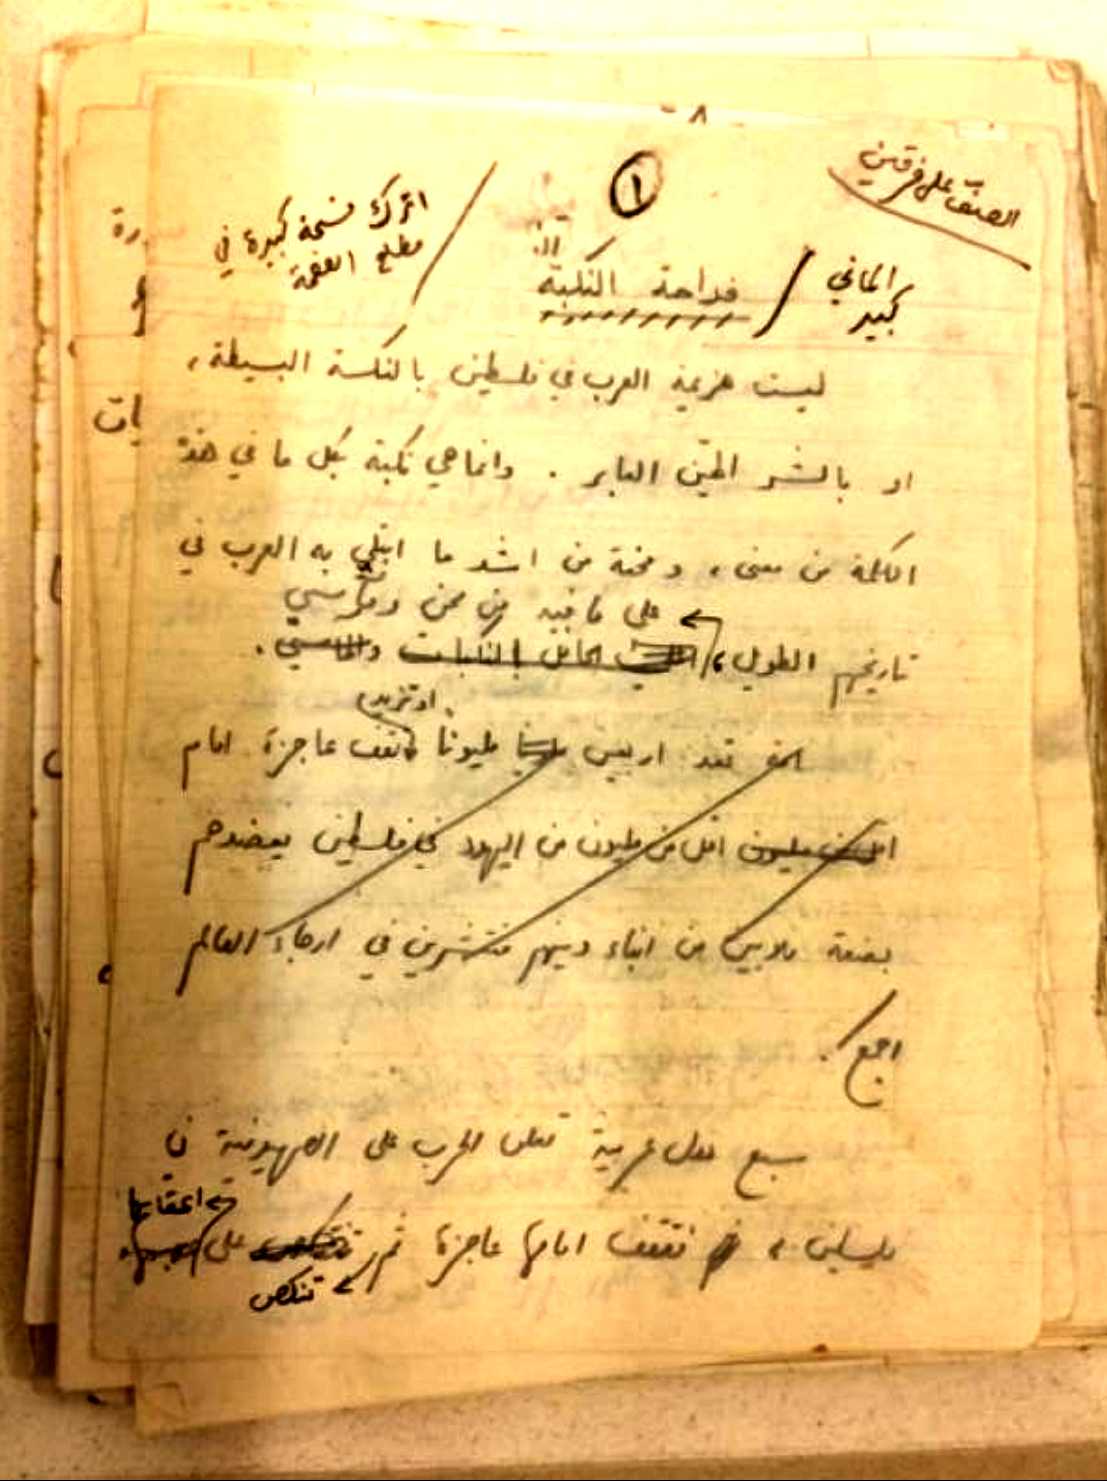 ١
اترك فسحة كبيرة في
مطلع الصفحة
الماني
كبير
فداحة النكبة
ليست هزيمة العرب في فلسطين بالنكسة البسيطة ،
او بالشر الهين العابر . وانما هي نكبة بكل ما في هذه
الكلمة من معنى ، ومحنة من اشد ما ابتلي به العرب في
على ما فيه من محن ومآسي
تاريخهم الطويل ، الحافل بالنكبات والمآسي .
او تزيد
اربعين مليونا تقف عاجزة امام
اقل من مليون من اليهود في فلسطين يعضدهم
بضعة ملايين من ابناء دينهم منتشرين في ارجاء العالم
اجمع .
سبع دول عربية تعلن الحرب على الصهيونية في
اعقابها
فلسطين ، فتقف امامها عاجزة ثم على
تنكص